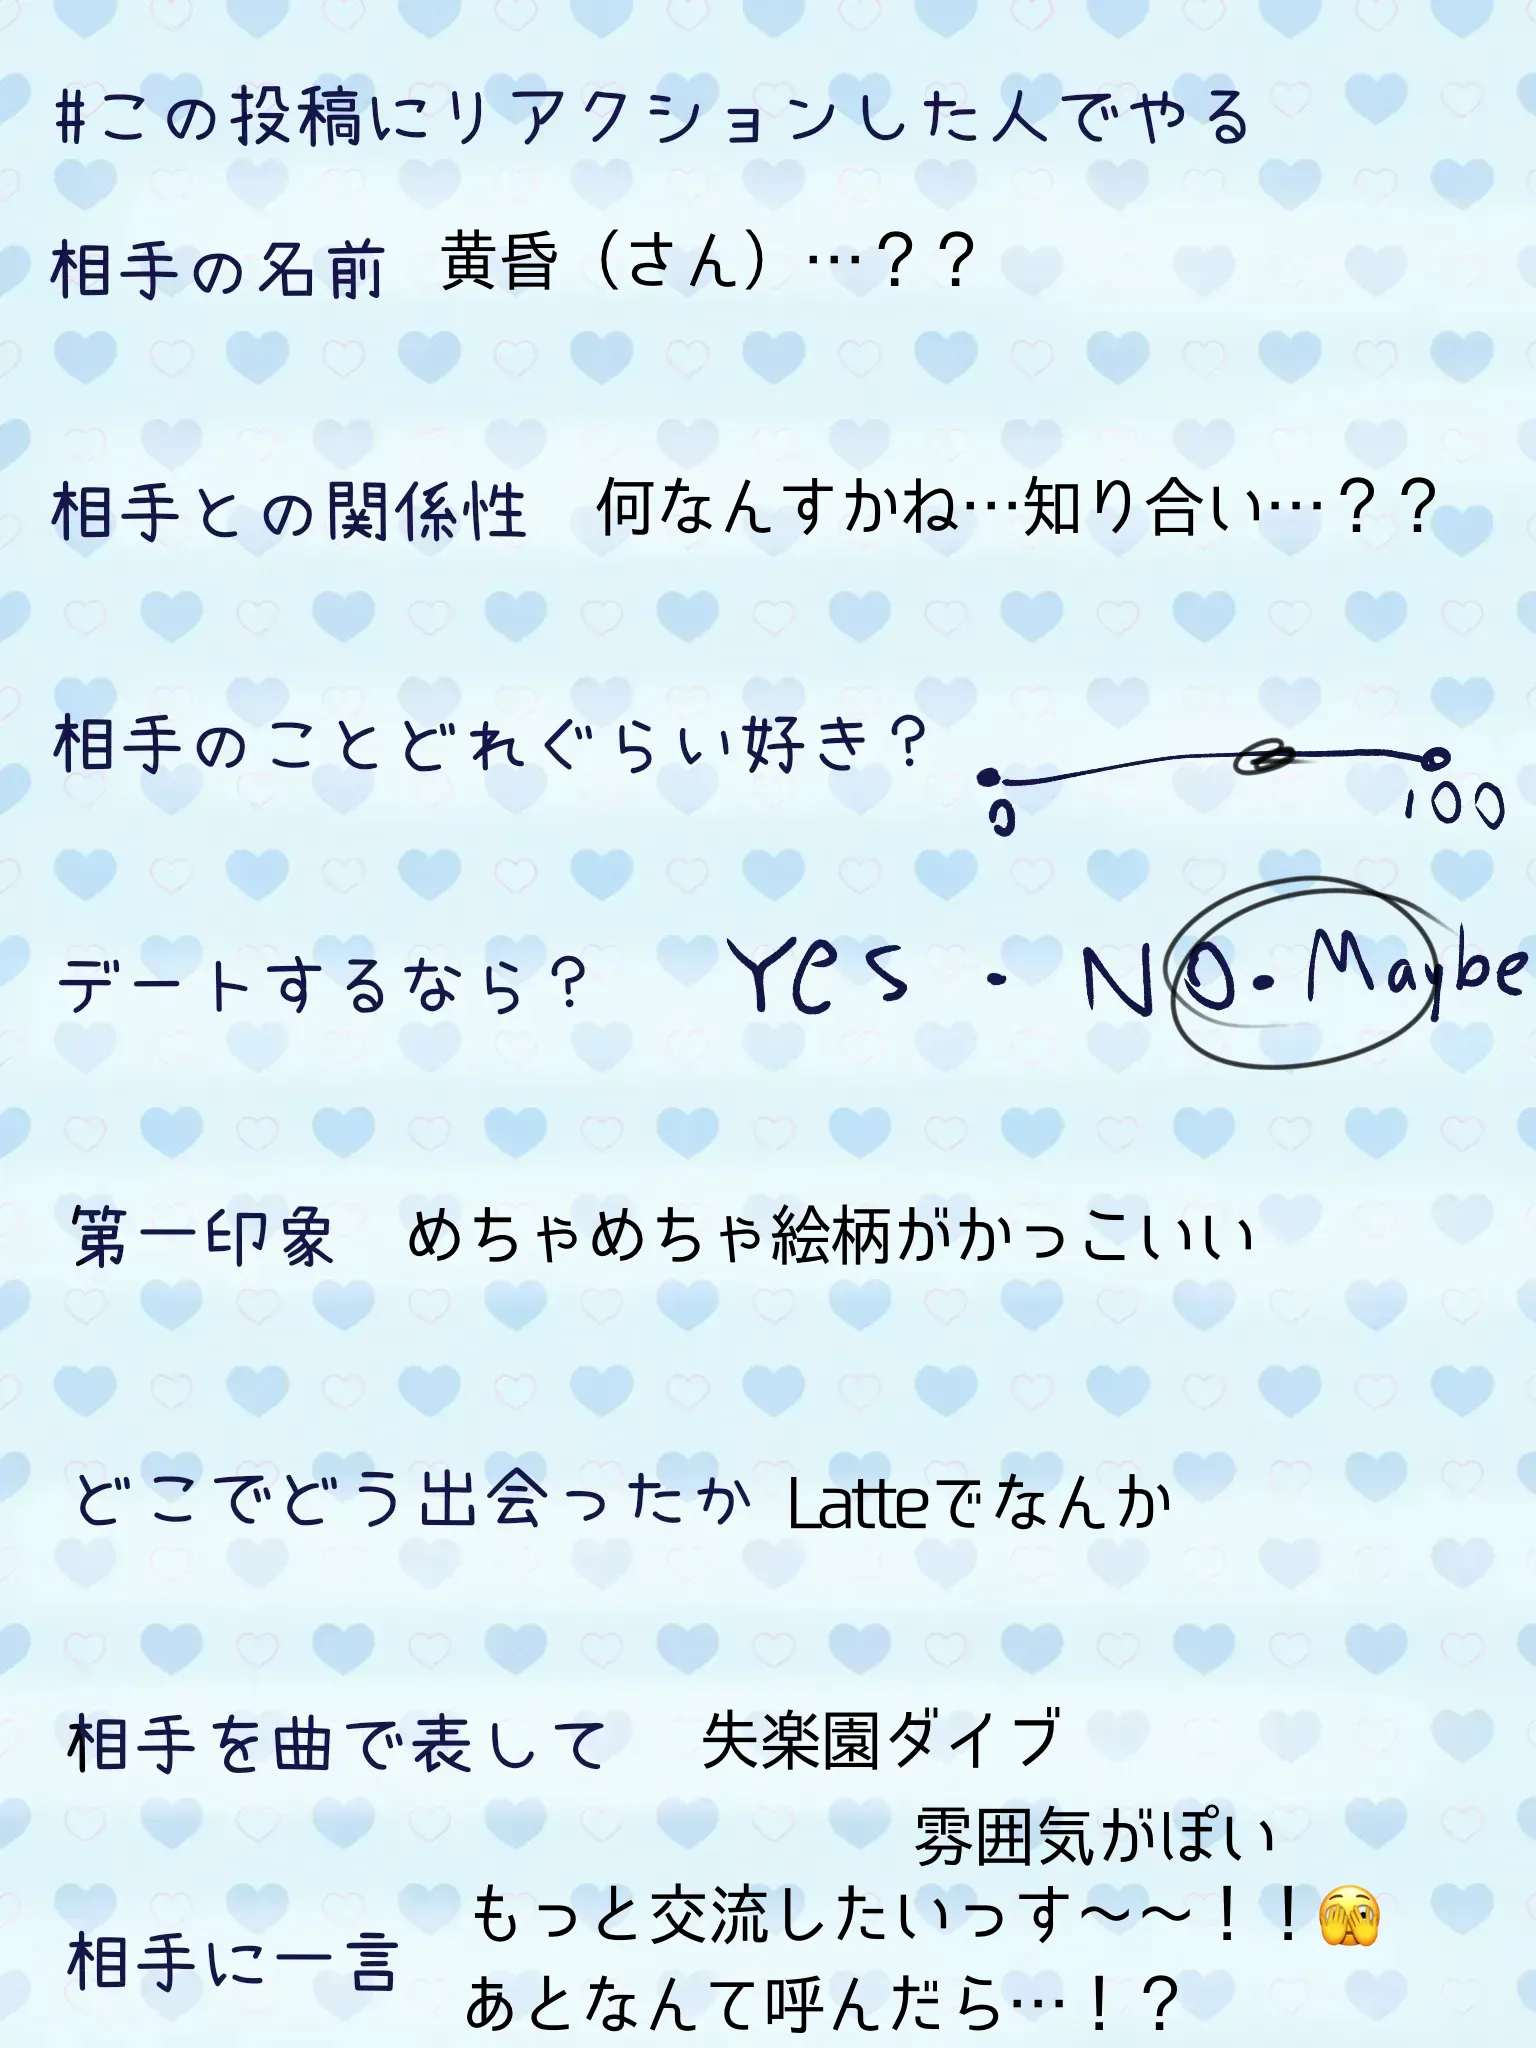 #この投稿にリアクションした人でやる
相手の名前 黄昏（さん）…？？
相手との関係性 何なんすかね…知り合い…？？
相手のことどれぐらい好き？
0 100
デートするなら？ Yes・NO・Maybe
第一印象 めちゃめちゃ絵柄がかっこいい
どこでどう出会ったか Latteでなんか
相手を曲で表して 失楽園ダイブ
雰囲気がぽい
相手に一言 もっと交流したいっす〜〜！！🫣
あとなんて呼んだら…！？